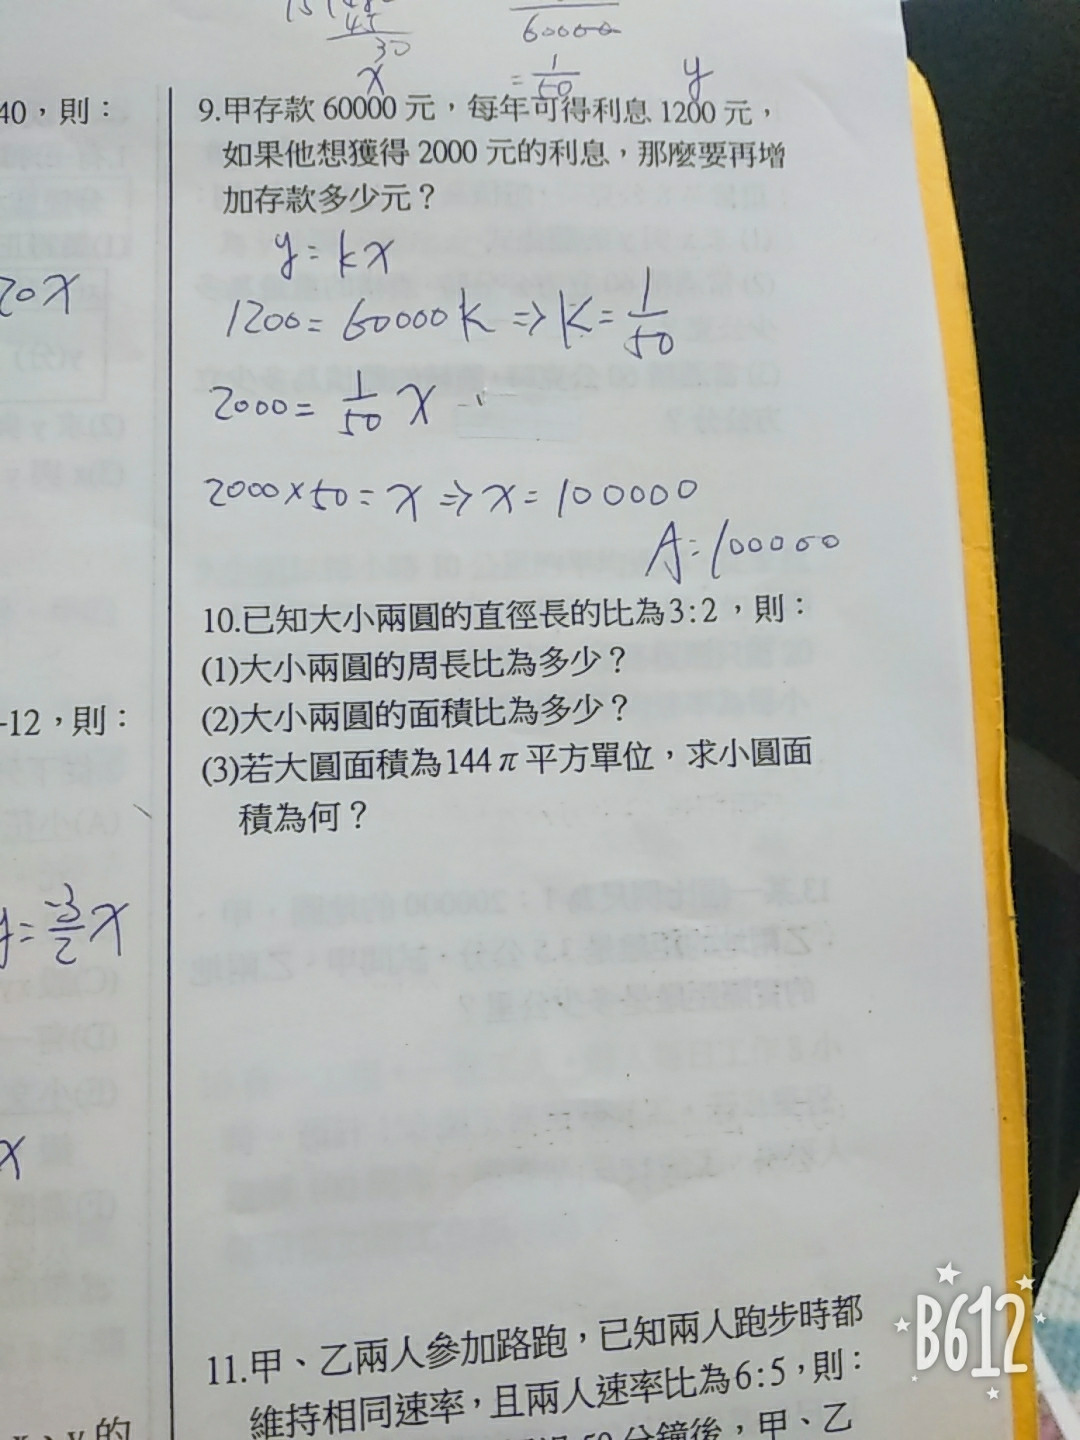 45
30
60000
x
= 1/50
y
40，則：
9.甲存款 60000 元，每年可得利息 1200 元，
如果他想獲得 2000 元的利息，那麼要再增
加存款多少元？
y = kx
20x
1200 = 60000k ⇒ k = 1/50
2000 = 1/50 x
2000×50 = x ⇒ x = 100000
A=100000
10.已知大小兩圓的直徑長的比為3:2，則：
(1)大小兩圓的周長比為多少？
(2)大小兩圓的面積比為多少？
-12，則：
(3)若大圓面積為144π平方單位，求小圓面
積為何？
y = -3/2 x
x
11.甲、乙兩人參加路跑，已知兩人跑步時都
維持相同速率，且兩人速率比為6:5，則：
分鐘後，甲、乙
x、y的
B612